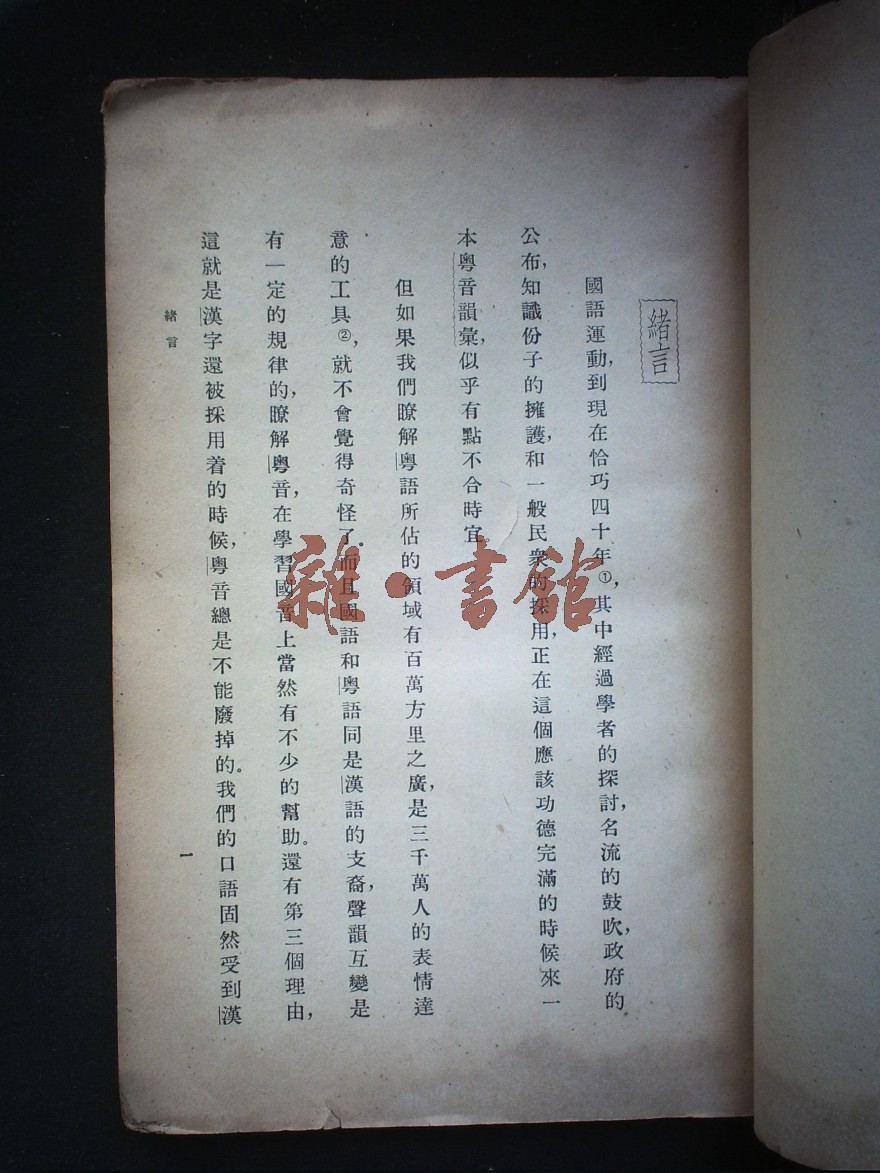 緒言
國語運動，到現在恰巧四十年①，其中經過學者的探討，名流的鼓吹，政府的
公布，知識份子的擁護，和一般民衆的採用，正在這個應該功德完滿的時候來一
本粵音韻彙，似乎有點不合時宜。
但如果我們瞭解粵語所佔的領域有百萬方里之廣，是三千萬人的表情達
意的工具②，就不會覺得奇怪了。而且國語和粵語同是漢語的支裔，聲韻互變是
有一定的規律的，瞭解粵音，在學習國音上當然有不少的幫助。還有第三個理由，
這就是漢字還被採用着的時候，粵音總是不能廢掉的。我們的口語固然受到漢
緒言
一
雜·書館